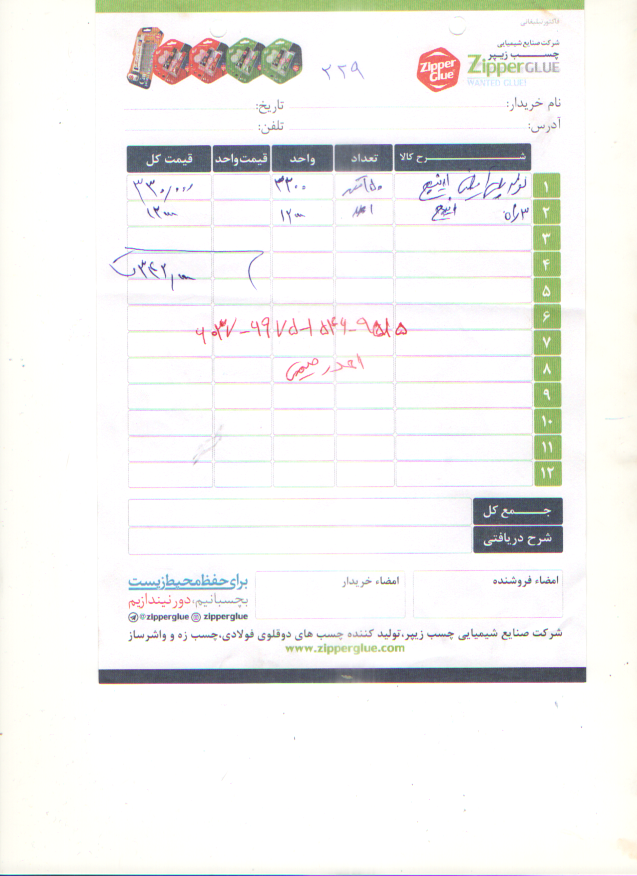 فاکتور سفارشاتی
شرکت صنایع شیمیایی
چسب زیپر
Zipper GLUE
WANTED GLUE!
Zipper Glue
۲۲۹
نام خریدار:
تاریخ:
آدرس:
تلفن:
شرح کالا تعداد واحد قیمت واحد قیمت کل
۱ لوله ۳۳۰۰ ۳۳۰/۰۰۰
۲ ۳راه ۱۲۰۰۰ ۱۲۰۰۰
۳
۴ ۳۴۲/۰۰۰
۵
۶
۶۰۳۷-۶۹۷۵-۱۵۴۶-۹۵۱۵
۷
۸ احمد
۹
۱۰
۱۱
۱۲
جمع کل
شرح دریافتی
امضاء فروشنده
امضاء خریدار
برای حفظ محیط زیست
بچسبانیم، دور نیندازیم
@zipperglue zipperglue
شرکت صنایع شیمیایی چسب زیپر، تولید کننده چسب های دوقلوی فولادی، چسب زه و واشرساز
www.zipperglue.com